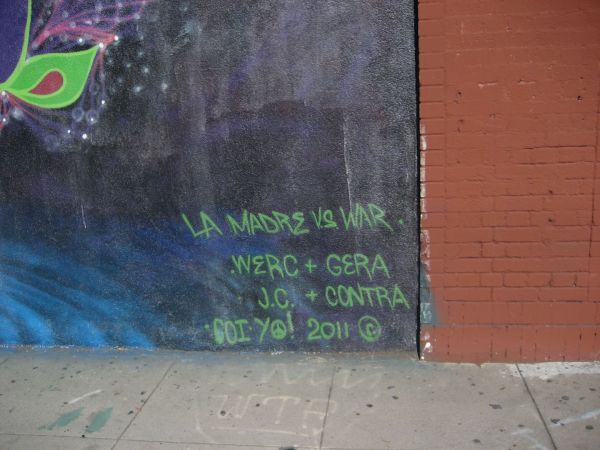 LA MADRE VS WAR.
.WERC + GERA
J.C. + CONTRA
.COI YO! 2011 ©
WTB